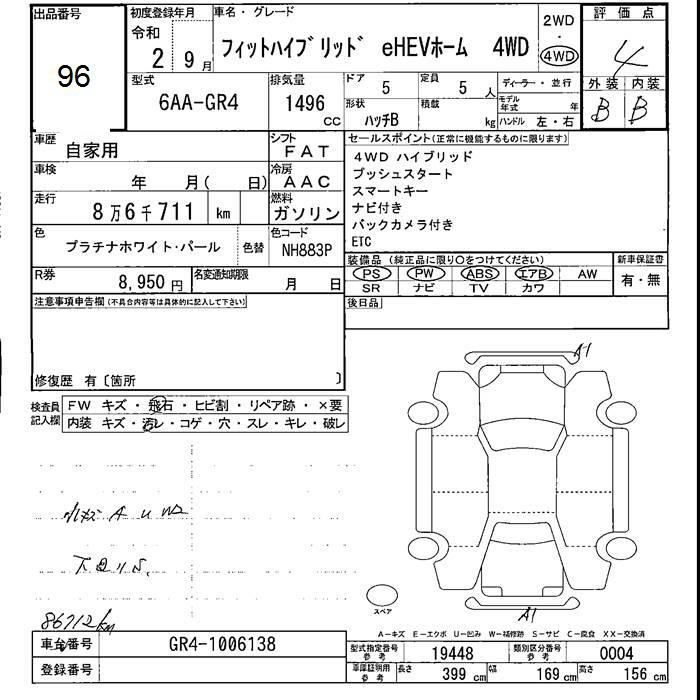 出品番号
96
初度登録年月
令和
2 9月
車名・グレード
フィットハイブリッド eHEVホーム 4WD
2WD
・
4WD
評価点
4
外装 内装
B B
型式
6AA-GR4
排気量
1496
CC
ドア
5
定員
5人
形状
ハッチB
積載
kg
ディーラー・並行
モデル年式 年
ハンドル 左・右
車歴
自家用
シフト
FAT
車検
年 月( 日)
冷房
AAC
走行
8万6千711 km
燃料
ガソリン
色
プラチナホワイト・パール
色替
色コード
NH883P
R券
8,950円
名変通知期限
月 日
セールスポイント(正常に機能するものに限ります)
4WD ハイブリッド
プッシュスタート
スマートキー
ナビ付き
バックカメラ付き
ETC
装備品 (純正品に限り○をつけてください)
PS PW ABS エアB AW
SR ナビ TV カワ
新車保証書
有・無
後日品
注意事項申告欄(不具合内容等は具体的に記入して下さい)
修復歴 有〔箇所 〕
検査員記入欄
FW キズ・飛石・ヒビ割・リペア跡・×要
内装 キズ・汚レ・コゲ・穴・スレ・キレ・破レ
小キズ A U W2
下回りS.
86712km
A1
A1
スペア
A-キズ E-エクボ U-凹み W-補修跡 S-サビ C-腐食 XX-交換済
車台番号
GR4-1006138
登録番号
型式指定番号 参考
19448
類別区分番号 参考
0004
車庫証明用 参考
長さ 399 cm 幅 169 cm 高さ 156 cm